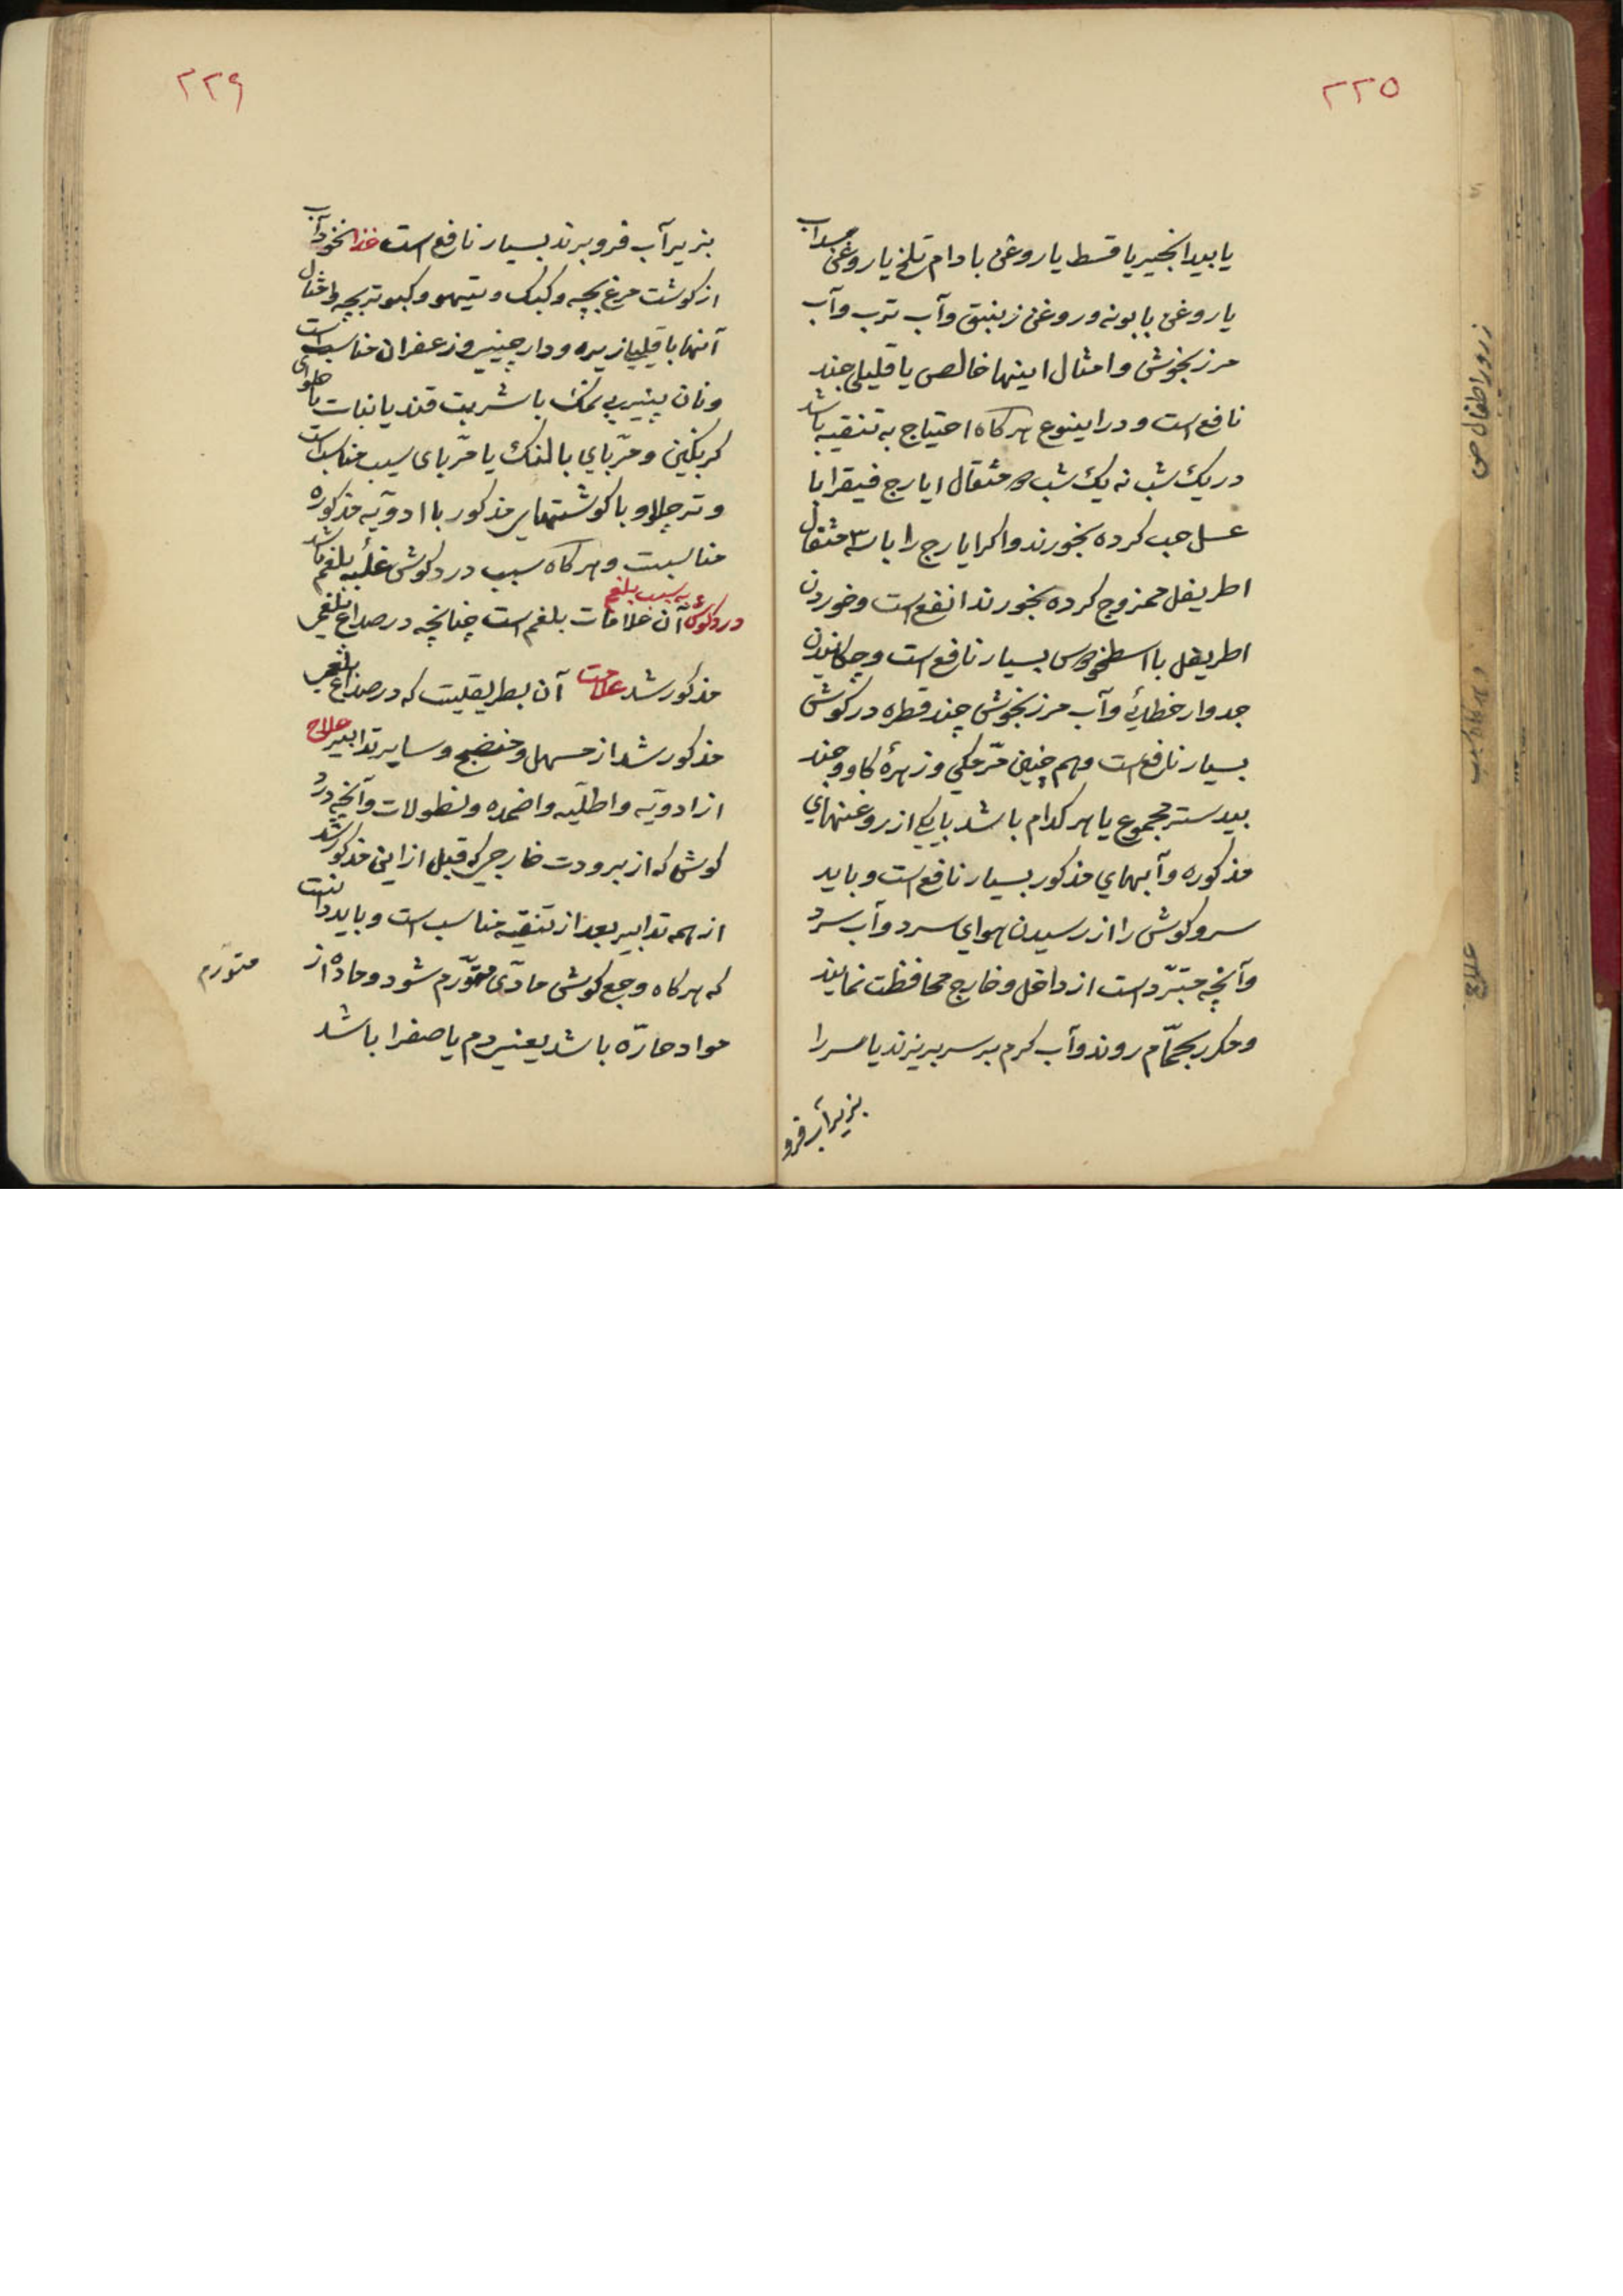 ۲۲۵
یا بیدانجیر یا قسط یا روغن بادام تلخ یا روغن سداب
یا روغن بابونه و روغن زنبق و آب ترب و آب
مرزنجوش و امثال اینها خالص یا قلیلی جند
نافع است و در اینوع هر کاه احتیاج به تنقیه باشد
در یک شب نه یک شب دو مثقال ایارج فیقرا با
عسل حب کرده بخورند و اکر ایارج را با سه مثقال
اطریفل ممزوج کرده بخورند انفع است و خوردن
اطریفل با اسطخودوس بسیار نافع است و چکانیدن
جدوار خطائی و آب مرزنجوش چند قطره در کوش
بسیار نافع است و هم چنین مرّ مکی و زهرهٔ کاو و جند
بیدستر مجموع یا هر کدام باشد با یکی از روغنهای
مذکوره و آبهای مذکور بسیار نافع است و باید
سر و کوش را از رسیدن هوای سرد و آب سرد
و آنچه مبرّد است از داخل و خارج محافظت نمایند
و مکرر بحمّام روند و آب کرم بر سر بریزند یا سر را
بزیر آب فرو
زرور اطفال ص
علاج
۲۲۶
بزیر آب فرو برند بسیار نافع است غذا نخودآب
از کوشت مرغ بچه و کبک و تیهو و کبوتر بچه و امثال
آنها با قلیلا زیره و دارچینی و زعفران مناسب است
و نان پنیر بی نمک با شربت قند یا نبات با حلوای
کزنکبین و مرّبای بالنک یا مرّبای سیب مناسب است
و تر چلاو با کوشتهای مذکور با ادویّه مذکوره
مناسبت و هر کاه سبب درد کوش غلبهٔ بلغم باشد
درد کوش به سبب بلغم آن علامات بلغم است چنانچه در صداع بلغمی
مذکور شد علامت آن بطریقیست که در صداع بلغمی
مذکور شد از مسهل و منضج و سایر تدابیر علاج
از ادویّه و اطلیّه و اضمده و نطولات و آنچه در درد
کوش که از برودت خارجی که قبل از این مذکور شد
از همه تدابیر بعد از تنقیه مناسب است و باید دانست
که هر کاه وجع کوش مادّی متورّم شود و مادّه از
متورّم
مواد حارّه باشد یعنی دم یا صفرا باشد